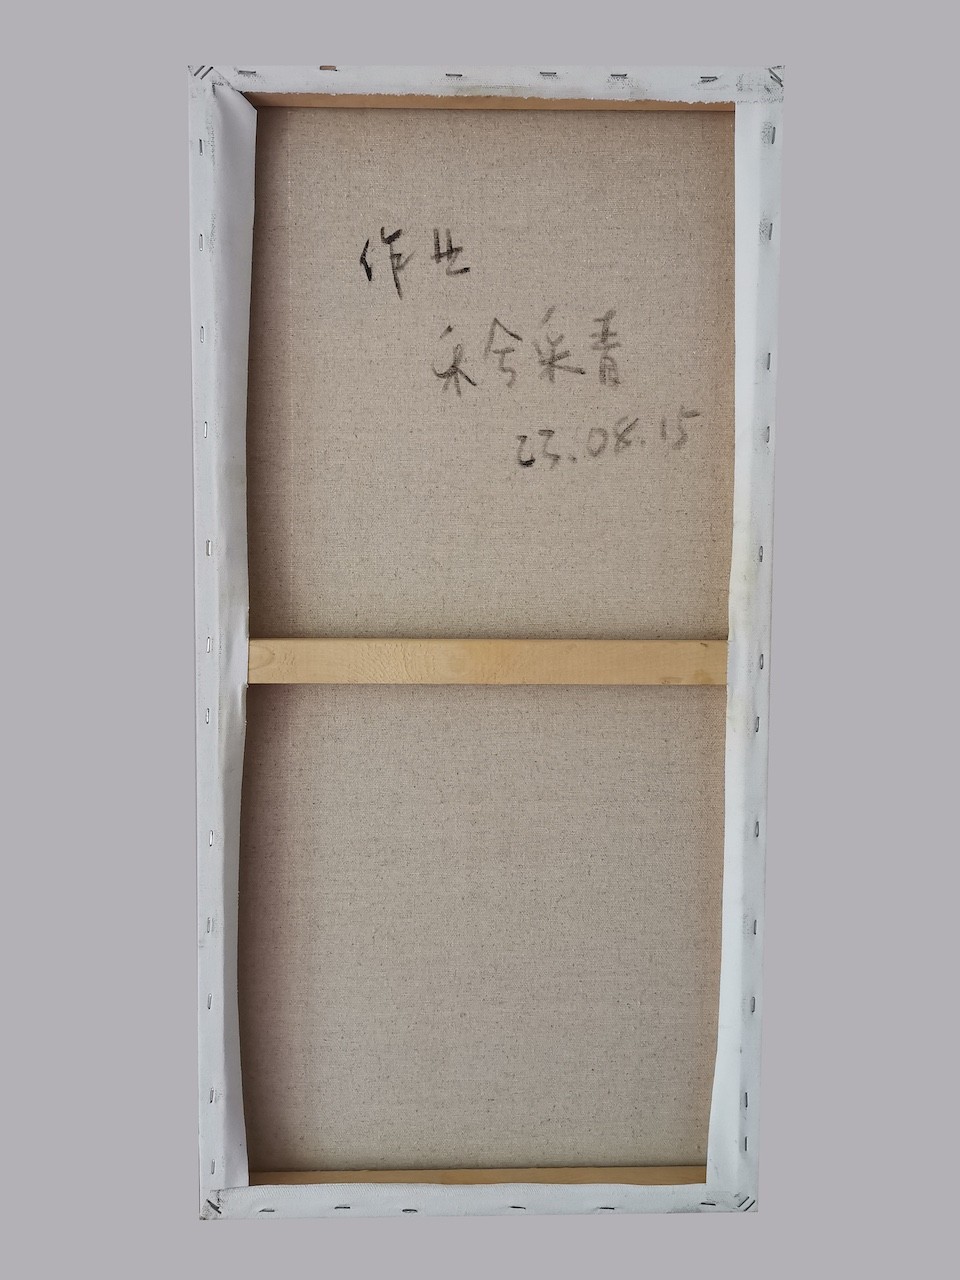 作业
采兮采青
23.08.15